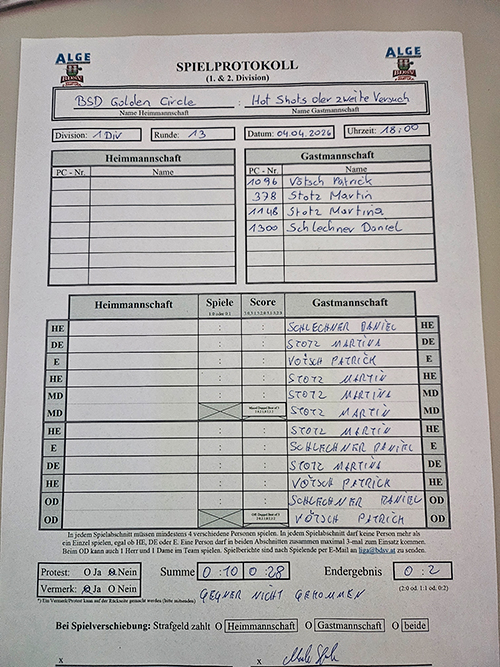 ALGE ALGE
SPIELPROTOKOLL
(1. & 2. Division)
BSD Golden Circle : Hot Shots oder zweite Versuch
Name Heimmannschaft Name Gastmannschaft
Division: 1 Div Runde: 13 Datum: 04.04.2026 Uhrzeit: 18:00
Heimmannschaft Gastmannschaft
PC - Nr. Name PC - Nr. Name
1096 Vötsch Patrick
378 Stotz Martin
1148 Stotz Martina
1300 Schlechner Daniel
Heimmannschaft Spiele Score Gastmannschaft
1:0 oder 0:1
HE : : SCHLECHNER DANIEL HE
DE : : STOTZ MARTINA DE
E : : VÖTSCH PATRICK E
HE : : STOTZ MARTIN HE
MD : : STOTZ MARTINA MD
MD STOTZ MARTIN MD
HE : : STOTZ MARTIN HE
E : : SCHLECHNER DANIEL E
DE : : STOTZ MARTINA DE
HE : : VÖTSCH PATRICK HE
OD : : SCHLECHNER DANIEL OD
OD VÖTSCH PATRICK OD
In jedem Spielabschnitt müssen mindestens 4 verschiedene Personen spielen. In jedem Spielabschnitt darf keine Person mehr als
ein Einzel spielen, egal ob HE, DE oder E. Eine Person darf in beiden Abschnitten zusammen maximal 3-mal zum Einsatz kommen.
Beim OD kann auch 1 Herr und 1 Dame im Team spielen. Spielberichte sind nach Spielende per E-Mail an liga@bdsv.at zu senden.
Protest: O Ja O Nein Summe 0 : 10 0 : 28 Endergebnis 0 : 2
Vermerk: O Ja O Nein GEGNER NICHT GEKOMMEN (2:0 od. 1:1 od. 0:2)
*) Ein Vermerk/Protest kann auf der Rückseite gemacht werden (bitte ankreuzen)
Bei Spielverschiebung: Strafgeld zahlt O Heimmannschaft O Gastmannschaft O beide
x x